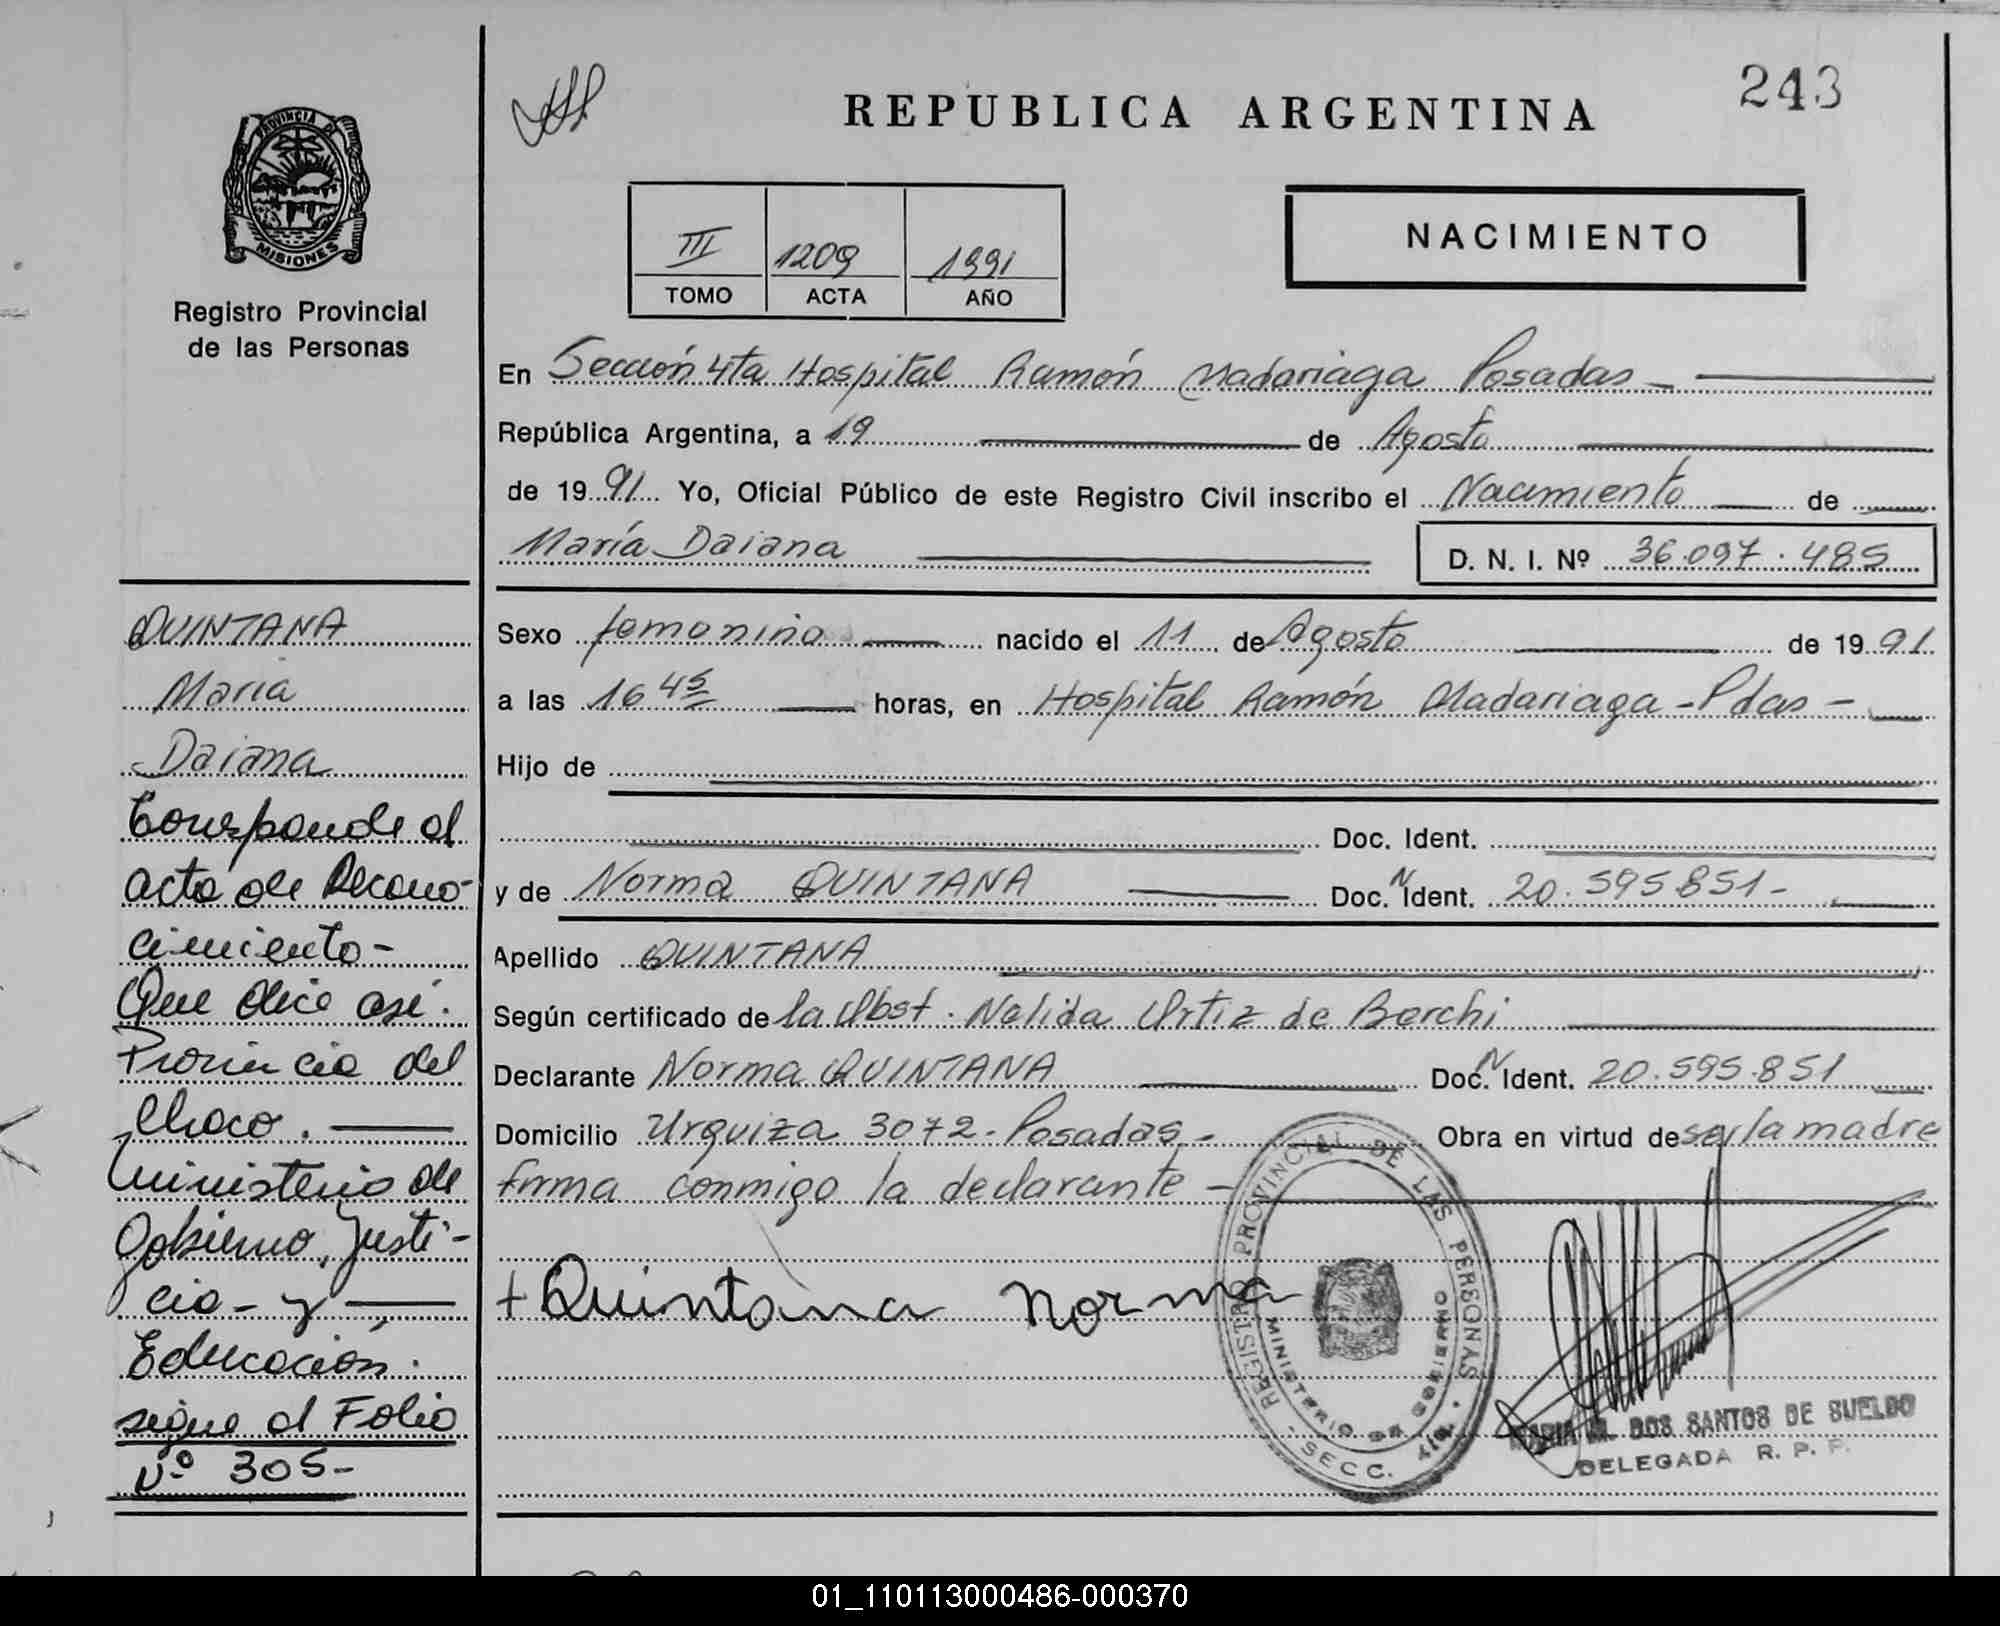 243
REPUBLICA ARGENTINA
PROVINCIA DE
MISIONES
Registro Provincial
de las Personas
III 1209 1991
TOMO ACTA AÑO
NACIMIENTO
En Sección 4ta Hospital Ramón Madariaga Posadas
República Argentina, a 19 de Agosto
de 1991 Yo, Oficial Público de este Registro Civil inscribo el Nacimiento de
María Daiana D. N. I. Nº 36.097.485
Sexo femenino nacido el 11 de Agosto de 1991
a las 16 45 horas, en Hospital Ramón Madariaga - Pdas -
Hijo de
Doc. Ident.
y de Norma QUINTANA Doc. N Ident. 20.595.851-
Apellido QUINTANA
Según certificado de la Obst. Nelida Ortiz de Berchi
Declarante Norma QUINTANA Doc. N Ident. 20.595.851
Domicilio Urquiza 3072 - Posadas - Obra en virtud de ser la madre
firma conmigo la declarante -
+ Quintana Norma
REGISTRO PROVINCIAL DE LAS PERSONAS
MINISTERIO DE GOBIERNO
SECC. 4ta
MARIA M. DOS SANTOS DE SUELDO
DELEGADA R. P. P.
QUINTANA
Maria
Daiana
Corresponde al
acta de Recono-
cimiento -
Que dice así.
Provincia del
Chaco.
Ministerio de
Gobierno, Justi-
cia - y
Educación.
sigue al Folio
Nº 305-
01_110113000486-000370